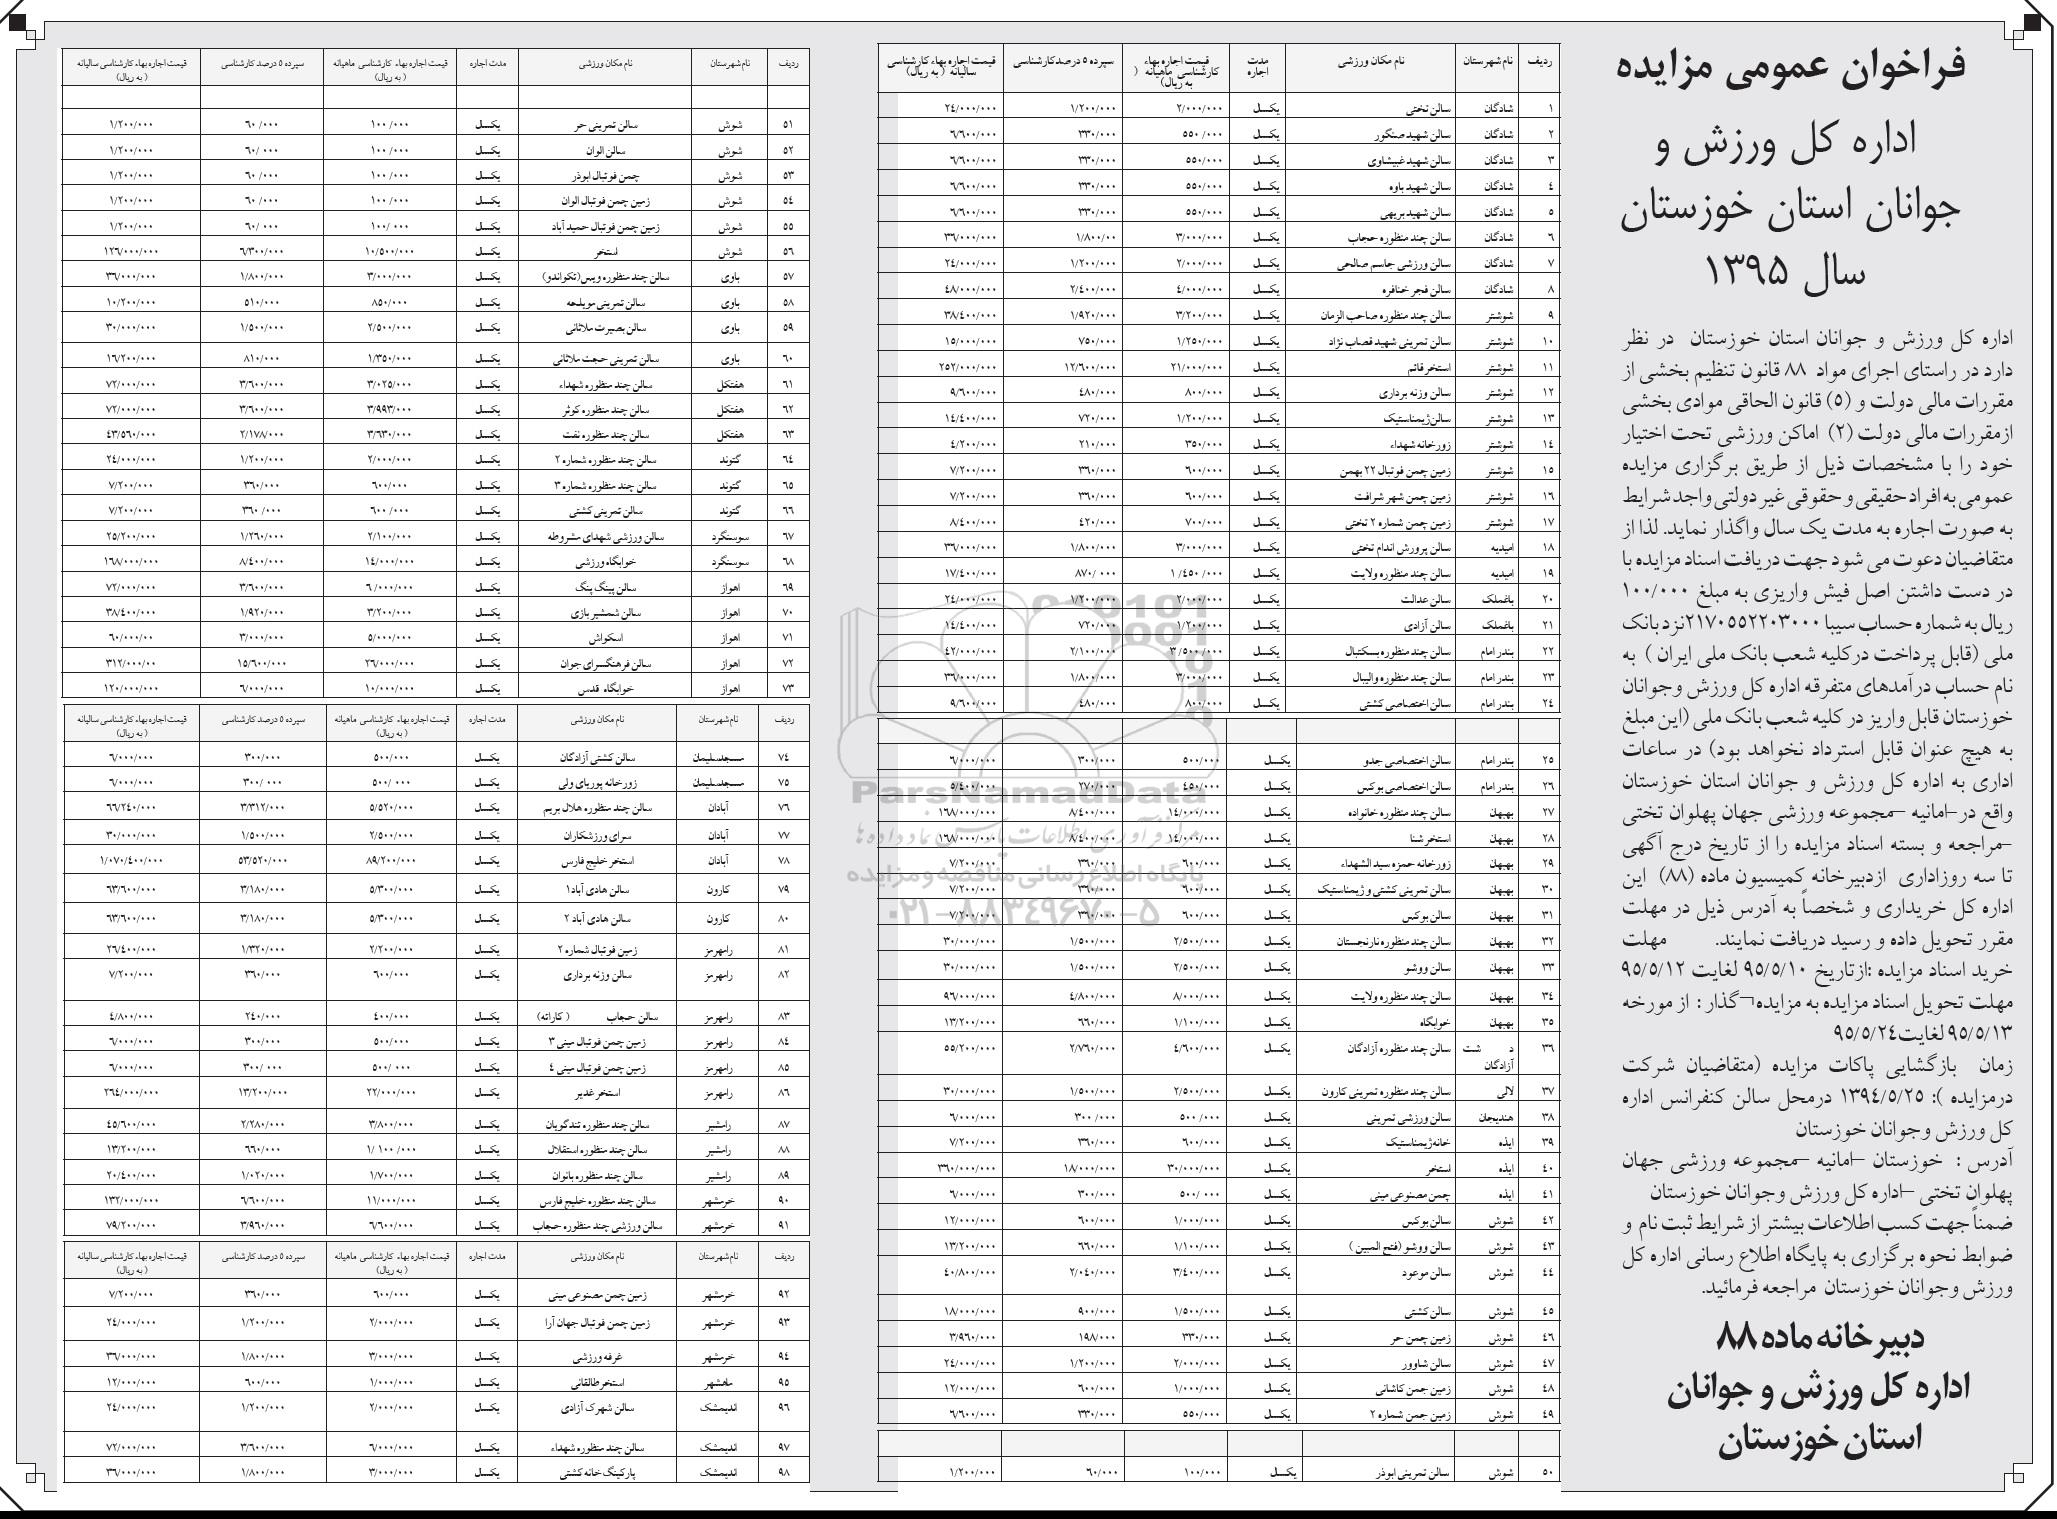 فراخوان عمومی مزایده
اداره کل ورزش و
جوانان استان خوزستان
سال ۱۳۹۵
اداره کل ورزش و جوانان استان خوزستان در نظر
دارد در راستای اجرای مواد ۸۸ قانون تنظیم بخشی از
مقررات مالی دولت و (۵) قانون الحاقی موادی بخشی
ازمقررات مالی دولت (۲) اماکن ورزشی تحت اختیار
خود را با مشخصات ذیل از طریق برگزاری مزایده
عمومی به افراد حقیقی و حقوقی غیر دولتی واجد شرایط
به صورت اجاره به مدت یک سال واگذار نماید. لذا از
متقاضیان دعوت می شود جهت دریافت اسناد مزایده با
در دست داشتن اصل فیش واریزی به مبلغ ۱۰۰/۰۰۰
ریال به شماره حساب سیبا ۲۱۷۰۵۵۲۲۰۳۰۰۰نزد بانک
ملی (قابل پرداخت درکلیه شعب بانک ملی ایران ) به
نام حساب درآمدهای متفرقه اداره کل ورزش وجوانان
خوزستان قابل واریز در کلیه شعب بانک ملی (این مبلغ
به هیچ عنوان قابل استرداد نخواهد بود) در ساعات
اداری به اداره کل ورزش و جوانان استان خوزستان
واقع در–امانیه –مجموعه ورزشی جهان پهلوان تختی
–مراجعه و بسته اسناد مزایده را از تاریخ درج آگهی
تا سه روزاداری ازدبیرخانه کمیسیون ماده (۸۸) این
اداره کل خریداری و شخصاً به آدرس ذیل در مهلت
مقرر تحویل داده و رسید دریافت نمایند. مهلت
خرید اسناد مزایده :ازتاریخ ۹۵/۵/۱۰ لغایت ۹۵/۵/۱۲
مهلت تحویل اسناد مزایده به مزایده¬گذار : از مورخه
۹۵/۵/۱۳ لغایت۹۵/۵/۲۴
زمان بازگشایی پاکات مزایده (متقاضیان شرکت
درمزایده ): ۱۳۹۴/۵/۲۵ درمحل سالن کنفرانس اداره
کل ورزش وجوانان خوزستان
آدرس : خوزستان –امانیه –مجموعه ورزشی جهان
پهلوان تختی –اداره کل ورزش وجوانان خوزستان
ضمناً جهت کسب اطلاعات بیشتر از شرایط ثبت نام و
ضوابط نحوه برگزاری به پایگاه اطلاع رسانی اداره کل
ورزش وجوانان خوزستان مراجعه فرمائید.
دبیرخانه ماده ۸۸
اداره کل ورزش و جوانان
استان خوزستان
ردیف نام شهرستان نام مکان ورزشی مدت اجاره قیمت اجاره بهاء کارشناسی ماهیانه ( به ریال) سپرده ۵ درصد کارشناسی قیمت اجاره بهاء کارشناسی سالیانه ( به ریال)
۱ شادگان سالن تختی یکسال ۲/۰۰۰/۰۰۰ ۱/۲۰۰/۰۰۰ ۲۴/۰۰۰/۰۰۰
۲ شادگان سالن شهید صنگور یکسال ۵۵۰/۰۰۰ ۳۳۰/۰۰۰ ۶/۶۰۰/۰۰۰
۳ شادگان سالن شهید غبیشاوی یکسال ۵۵۰/۰۰۰ ۳۳۰/۰۰۰ ۶/۶۰۰/۰۰۰
۴ شادگان سالن شهید باوه یکسال ۵۵۰/۰۰۰ ۳۳۰/۰۰۰ ۶/۶۰۰/۰۰۰
۵ شادگان سالن شهید بریهی یکسال ۵۵۰/۰۰۰ ۳۳۰/۰۰۰ ۶/۶۰۰/۰۰۰
۶ شادگان سالن چند منظوره حجاب یکسال ۳/۰۰۰/۰۰۰ ۱/۸۰۰/۰۰ ۳۶/۰۰۰/۰۰۰
۷ شادگان سالن ورزشی جاسم صالحی یکسال ۲/۰۰۰/۰۰۰ ۱/۲۰۰/۰۰۰ ۲۴/۰۰۰/۰۰۰
۸ شادگان سالن فجر خنافره یکسال ۴/۰۰۰/۰۰۰ ۲/۴۰۰/۰۰۰ ۴۸/۰۰۰/۰۰۰
۹ شوشتر سالن چند منظوره صاحب الزمان یکسال ۳/۲۰۰/۰۰۰ ۱/۹۲۰/۰۰۰ ۳۸/۴۰۰/۰۰۰
۱۰ شوشتر سالن تمرینی شهید قصاب نژاد یکسال ۱/۲۵۰/۰۰۰ ۷۵۰/۰۰۰ ۱۵/۰۰۰/۰۰۰
۱۱ شوشتر استخر قائم یکسال ۲۱/۰۰۰/۰۰۰ ۱۲/۶۰۰/۰۰۰ ۲۵۲/۰۰۰/۰۰۰
۱۲ شوشتر سالن وزنه برداری یکسال ۸۰۰/۰۰۰ ۴۸۰/۰۰۰ ۹/۶۰۰/۰۰۰
۱۳ شوشتر سالن‌ژیمناستیک یکسال ۱/۲۰۰/۰۰۰ ۷۲۰/۰۰۰ ۱۴/۴۰۰/۰۰۰
۱۴ شوشتر زورخانه شهداء یکسال ۳۵۰/۰۰۰ ۲۱۰/۰۰۰ ۴/۲۰۰/۰۰۰
۱۵ شوشتر زمین چمن فوتبال ۲۲ بهمن یکسال ۶۰۰/۰۰۰ ۳۶۰/۰۰۰ ۷/۲۰۰/۰۰۰
۱۶ شوشتر زمین چمن شهر شرافت یکسال ۶۰۰/۰۰۰ ۳۶۰/۰۰۰ ۷/۲۰۰/۰۰۰
۱۷ شوشتر زمین چمن شماره ۲ تختی یکسال ۷۰۰/۰۰۰ ۴۲۰/۰۰۰ ۸/۴۰۰/۰۰۰
۱۸ امیدیه سالن پرورش اندام تختی یکسال ۳/۰۰۰/۰۰۰ ۱/۸۰۰/۰۰۰ ۳۶/۰۰۰/۰۰۰
۱۹ امیدیه سالن چند منظوره ولایت یکسال ۱/۴۵۰/۰۰۰ ۸۷۰/۰۰۰ ۱۷/۴۰۰/۰۰۰
۲۰ باغملک سالن عدالت یکسال ۲/۰۰۰/۰۰۰ ۱/۲۰۰/۰۰۰ ۲۴/۰۰۰/۰۰۰
۲۱ باغملک سالن آزادی یکسال ۱/۲۰۰/۰۰۰ ۷۲۰/۰۰۰ ۱۴/۴۰۰/۰۰۰
۲۲ بندر امام سالن چند منظوره بسکتبال یکسال ۳/۵۰۰/۰۰۰ ۲/۱۰۰/۰۰۰ ۴۲/۰۰۰/۰۰۰
۲۳ بندر امام سالن چند منظوره والیبال یکسال ۳/۰۰۰/۰۰۰ ۱/۸۰۰/۰۰۰ ۳۶/۰۰۰/۰۰۰
۲۴ بندر امام سالن اختصاصی کشتی یکسال ۸۰۰/۰۰۰ ۴۸۰/۰۰۰ ۹/۶۰۰/۰۰۰
۲۵ بندر امام سالن اختصاصی جدو یکسال ۵۰۰/۰۰۰ ۳۰۰/۰۰۰ ۶/۰۰۰/۰۰۰
۲۶ بندر امام سالن اختصاصی بوکس یکسال ۴۵۰/۰۰۰ ۲۷۰/۰۰۰ ۵/۴۰۰/۰۰۰
۲۷ بهبهان سالن چند منظوره خانواده یکسال ۱۴/۰۰۰/۰۰۰ ۸/۴۰۰/۰۰۰ ۱۶۸/۰۰۰/۰۰۰
۲۸ بهبهان استخر شنا یکسال ۱۴/۰۰۰/۰۰۰ ۸/۴۰۰/۰۰۰ ۱۶۸/۰۰۰/۰۰۰
۲۹ بهبهان زورخانه حمزه سید الشهداء یکسال ۶۰۰/۰۰۰ ۳۶۰/۰۰۰ ۷/۲۰۰/۰۰۰
۳۰ بهبهان سالن تمرینی کشتی و ژیمناستیک یکسال ۶۰۰/۰۰۰ ۳۶۰/۰۰۰ ۷/۲۰۰/۰۰۰
۳۱ بهبهان سالن بوکس یکسال ۶۰۰/۰۰۰ ۳۶۰/۰۰۰ ۷/۲۰۰/۰۰۰
۳۲ بهبهان سالن چند منظوره نارنجستان یکسال ۲/۵۰۰/۰۰۰ ۱/۵۰۰/۰۰۰ ۳۰/۰۰۰/۰۰۰
۳۳ بهبهان سالن ووشو یکسال ۲/۵۰۰/۰۰۰ ۱/۵۰۰/۰۰۰ ۳۰/۰۰۰/۰۰۰
۳۴ بهبهان سالن چند منظوره ولایت یکسال ۸/۰۰۰/۰۰۰ ۴/۸۰۰/۰۰۰ ۹۶/۰۰۰/۰۰۰
۳۵ بهبهان خوابگاه یکسال ۱/۱۰۰/۰۰۰ ۶۶۰/۰۰۰ ۱۳/۲۰۰/۰۰۰
۳۶ د شت آزادگان سالن چند منظوره آزادگان یکسال ۴/۶۰۰/۰۰۰ ۲/۷۶۰/۰۰۰ ۵۵/۲۰۰/۰۰۰
۳۷ لالی سالن چند منظوره تمرینی کارون یکسال ۲/۵۰۰/۰۰۰ ۱/۵۰۰/۰۰۰ ۳۰/۰۰۰/۰۰۰
۳۸ هندیجان سالن ورزشی تمرینی یکسال ۵۰۰/۰۰۰ ۳۰۰/۰۰۰ ۶/۰۰۰/۰۰۰
۳۹ ایذه خانه‌ژیمناستیک یکسال ۶۰۰/۰۰۰ ۳۶۰/۰۰۰ ۷/۲۰۰/۰۰۰
۴۰ ایذه استخر یکسال ۳۰/۰۰۰/۰۰۰ ۱۸/۰۰۰/۰۰۰ ۳۶۰/۰۰۰/۰۰۰
۴۱ ایذه چمن مصنوعی مینی یکسال ۵۰۰/۰۰۰ ۳۰۰/۰۰۰ ۶/۰۰۰/۰۰۰
۴۲ شوش سالن بوکس یکسال ۱/۰۰۰/۰۰۰ ۶۰۰/۰۰۰ ۱۲/۰۰۰/۰۰۰
۴۳ شوش سالن ووشو (فتح المبین ) یکسال ۱/۱۰۰/۰۰۰ ۶۶۰/۰۰۰ ۱۳/۲۰۰/۰۰۰
۴۴ شوش سالن موعود یکسال ۳/۴۰۰/۰۰۰ ۲/۰۴۰/۰۰۰ ۴۰/۸۰۰/۰۰۰
۴۵ شوش سالن کشتی یکسال ۱/۵۰۰/۰۰۰ ۹۰۰/۰۰۰ ۱۸/۰۰۰/۰۰۰
۴۶ شوش زمین چمن حر یکسال ۳۳۰/۰۰۰ ۱۹۸/۰۰۰ ۳/۹۶۰/۰۰۰
۴۷ شوش سالن شاوور یکسال ۲/۰۰۰/۰۰۰ ۱/۲۰۰/۰۰۰ ۲۴/۰۰۰/۰۰۰
۴۸ شوش زمین چمن کاشانی یکسال ۱/۰۰۰/۰۰۰ ۶۰۰/۰۰۰ ۱۲/۰۰۰/۰۰۰
۴۹ شوش زمین چمن شماره ۲ یکسال ۵۵۰/۰۰۰ ۳۳۰/۰۰۰ ۶/۶۰۰/۰۰۰
۵۰ شوش سالن تمرینی ابوذر یکسال ۱۰۰/۰۰۰ ۶۰/۰۰۰ ۱/۲۰۰/۰۰۰
ردیف نام شهرستان نام مکان ورزشی مدت اجاره قیمت اجاره بهاء کارشناسی ماهیانه ( به ریال) سپرده ۵ درصد کارشناسی قیمت اجاره بهاء کارشناسی سالیانه ( به ریال)
۵۱ شوش سالن تمرینی حر یکسال ۱۰۰/۰۰۰ ۶۰/۰۰۰ ۱/۲۰۰/۰۰۰
۵۲ شوش سالن الوان یکسال ۱۰۰/۰۰۰ ۶۰/۰۰۰ ۱/۲۰۰/۰۰۰
۵۳ شوش چمن فوتبال ابوذر یکسال ۱۰۰/۰۰۰ ۶۰/۰۰۰ ۱/۲۰۰/۰۰۰
۵۴ شوش زمین چمن فوتبال الوان یکسال ۱۰۰/۰۰۰ ۶۰/۰۰۰ ۱/۲۰۰/۰۰۰
۵۵ شوش زمین چمن فوتبال حمید آباد یکسال ۱۰۰/۰۰۰ ۶۰/۰۰۰ ۱/۲۰۰/۰۰۰
۵۶ شوش استخر یکسال ۱۰/۵۰۰/۰۰۰ ۶/۳۰۰/۰۰۰ ۱۲۶/۰۰۰/۰۰۰
۵۷ باوی سالن چند منظوره ویس(تکواندو) یکسال ۳/۰۰۰/۰۰۰ ۱/۸۰۰/۰۰۰ ۳۶/۰۰۰/۰۰۰
۵۸ باوی سالن تمرینی مویلحه یکسال ۸۵۰/۰۰۰ ۵۱۰/۰۰۰ ۱۰/۲۰۰/۰۰۰
۵۹ باوی سالن بصیرت ملاثانی یکسال ۲/۵۰۰/۰۰۰ ۱/۵۰۰/۰۰۰ ۳۰/۰۰۰/۰۰۰
۶۰ باوی سالن تمرینی حجت ملاثانی یکسال ۱/۳۵۰/۰۰۰ ۸۱۰/۰۰۰ ۱۶/۲۰۰/۰۰۰
۶۱ هفتکل سالن چند منظوره شهداء یکسال ۳/۰۲۵/۰۰۰ ۳/۶۰۰/۰۰۰ ۷۲/۰۰۰/۰۰۰
۶۲ هفتکل سالن چند منظوره کوثر یکسال ۳/۹۹۳/۰۰۰ ۳/۶۰۰/۰۰۰ ۷۲/۰۰۰/۰۰۰
۶۳ هفتکل سالن چند منظوره نفت یکسال ۳/۶۳۰/۰۰۰ ۲/۱۷۸/۰۰۰ ۴۳/۵۶۰/۰۰۰
۶۴ گتوند سالن چند منظوره شماره ۲ یکسال ۲/۰۰۰/۰۰۰ ۱/۲۰۰/۰۰۰ ۲۴/۰۰۰/۰۰۰
۶۵ گتوند سالن چند منظوره شماره ۳ یکسال ۶۰۰/۰۰۰ ۳۶۰/۰۰۰ ۷/۲۰۰/۰۰۰
۶۶ گتوند سالن تمرینی کشتی یکسال ۶۰۰/۰۰۰ ۳۶۰/۰۰۰ ۷/۲۰۰/۰۰۰
۶۷ سوسنگرد سالن ورزشی شهدای مشروطه یکسال ۲/۱۰۰/۰۰۰ ۱/۲۶۰/۰۰۰ ۲۵/۲۰۰/۰۰۰
۶۸ سوسنگرد خوابگاه ورزشی یکسال ۱۴/۰۰۰/۰۰۰ ۸/۴۰۰/۰۰۰ ۱۶۸/۰۰۰/۰۰۰
۶۹ اهواز سالن پینگ پنگ یکسال ۶/۰۰۰/۰۰۰ ۳/۶۰۰/۰۰۰ ۷۲/۰۰۰/۰۰۰
۷۰ اهواز سالن شمشیر بازی یکسال ۳/۲۰۰/۰۰۰ ۱/۹۲۰/۰۰۰ ۳۸/۴۰۰/۰۰۰
۷۱ اهواز اسکواش یکسال ۵/۰۰۰/۰۰۰ ۳/۰۰۰/۰۰۰ ۶۰/۰۰۰/۰۰
۷۲ اهواز سالن فرهنگسرای جوان یکسال ۲۶/۰۰۰/۰۰۰ ۱۵/۶۰۰/۰۰۰ ۳۱۲/۰۰۰/۰۰
۷۳ اهواز خوابگاه قدس یکسال ۱۰/۰۰۰/۰۰۰ ۶/۰۰۰/۰۰۰ ۱۲۰/۰۰۰/۰۰۰
ردیف نام شهرستان نام مکان ورزشی مدت اجاره قیمت اجاره بهاء کارشناسی ماهیانه ( به ریال) سپرده ۵ درصد کارشناسی قیمت اجاره بهاء کارشناسی سالیانه ( به ریال)
۷۴ مسجدسلیمان سالن کشتی آزادگان یکسال ۵۰۰/۰۰۰ ۳۰۰/۰۰۰ ۶/۰۰۰/۰۰۰
۷۵ مسجدسلیمان زورخانه پوریای ولی یکسال ۵۰۰/۰۰۰ ۳۰۰/۰۰۰ ۶/۰۰۰/۰۰۰
۷۶ آبادان سالن چند منظوره هلال بریم یکسال ۵/۵۲۰/۰۰۰ ۳/۳۱۲/۰۰۰ ۶۶/۲۴۰/۰۰۰
۷۷ آبادان سرای ورزشکاران یکسال ۲/۵۰۰/۰۰۰ ۱/۵۰۰/۰۰۰ ۳۰/۰۰۰/۰۰۰
۷۸ آبادان استخر خلیج فارس یکسال ۸۹/۲۰۰/۰۰۰ ۵۳/۵۲۰/۰۰۰ ۱/۰۷۰/۴۰۰/۰۰۰
۷۹ کارون سالن هادی آباد۱ یکسال ۵/۳۰۰/۰۰۰ ۳/۱۸۰/۰۰۰ ۶۳/۶۰۰/۰۰۰
۸۰ کارون سالن هادی آباد ۲ یکسال ۵/۳۰۰/۰۰۰ ۳/۱۸۰/۰۰۰ ۶۳/۶۰۰/۰۰۰
۸۱ رامهرمز زمین فوتبال شماره ۲ یکسال ۲/۲۰۰/۰۰۰ ۱/۳۲۰/۰۰۰ ۲۶/۴۰۰/۰۰۰
۸۲ رامهرمز سالن وزنه برداری یکسال ۶۰۰/۰۰۰ ۳۶۰/۰۰۰ ۷/۲۰۰/۰۰۰
۸۳ رامهرمز سالن حجاب ( کاراته) یکسال ۴۰۰/۰۰۰ ۲۴۰/۰۰۰ ۴/۸۰۰/۰۰۰
۸۴ رامهرمز زمین چمن فوتبال مینی ۳ یکسال ۵۰۰/۰۰۰ ۳۰۰/۰۰۰ ۶/۰۰۰/۰۰۰
۸۵ رامهرمز زمین چمن فوتبال مینی ۴ یکسال ۵۰۰/۰۰۰ ۳۰۰/۰۰۰ ۶/۰۰۰/۰۰۰
۸۶ رامهرمز استخر غدیر یکسال ۲۲/۰۰۰/۰۰۰ ۱۳/۲۰۰/۰۰۰ ۲۶۴/۰۰۰/۰۰۰
۸۷ رامشیر سالن چند منظوره تندگویان یکسال ۳/۸۰۰/۰۰۰ ۲/۲۸۰/۰۰۰ ۴۵/۶۰۰/۰۰۰
۸۸ رامشیر سالن چند منظوره استقلال یکسال ۱/۱۰۰/۰۰۰ ۶۶۰/۰۰۰ ۱۳/۲۰۰/۰۰۰
۸۹ رامشیر سالن چند منظوره بانوان یکسال ۱/۷۰۰/۰۰۰ ۱/۰۲۰/۰۰۰ ۲۰/۴۰۰/۰۰۰
۹۰ خرمشهر سالن چند منظوره خلیج فارس یکسال ۱۱/۰۰۰/۰۰۰ ۶/۶۰۰/۰۰۰ ۱۳۲/۰۰۰/۰۰۰
۹۱ خرمشهر سالن ورزشی چند منظوره حجاب یکسال ۶/۶۰۰/۰۰۰ ۳/۹۶۰/۰۰۰ ۷۹/۲۰۰/۰۰۰
ردیف نام شهرستان نام مکان ورزشی مدت اجاره قیمت اجاره بهاء کارشناسی ماهیانه ( به ریال) سپرده ۵ درصد کارشناسی قیمت اجاره بهاء کارشناسی سالیانه ( به ریال)
۹۲ خرمشهر زمین چمن مصنوعی مینی یکسال ۶۰۰/۰۰۰ ۳۶۰/۰۰۰ ۷/۲۰۰/۰۰۰
۹۳ خرمشهر زمین چمن فوتبال جهان آرا یکسال ۲/۰۰۰/۰۰۰ ۱/۲۰۰/۰۰۰ ۲۴/۰۰۰/۰۰۰
۹۴ خرمشهر غرفه ورزشی یکسال ۳/۰۰۰/۰۰۰ ۱/۸۰۰/۰۰۰ ۳۶/۰۰۰/۰۰۰
۹۵ ماهشهر استخر طالقانی یکسال ۱/۰۰۰/۰۰۰ ۶۰۰/۰۰۰ ۱۲/۰۰۰/۰۰۰
۹۶ اندیمشک سالن شهرک آزادی یکسال ۲/۰۰۰/۰۰۰ ۱/۲۰۰/۰۰۰ ۲۴/۰۰۰/۰۰۰
۹۷ اندیمشک سالن چند منظوره شهداء یکسال ۶/۰۰۰/۰۰۰ ۳/۶۰۰/۰۰۰ ۷۲/۰۰۰/۰۰۰
۹۸ اندیمشک پارکینگ خانه کشتی یکسال ۳/۰۰۰/۰۰۰ ۱/۸۰۰/۰۰۰ ۳۶/۰۰۰/۰۰۰
ParsNamadData
پایگاه اطلاع رسانی مناقصه و مزایده
۰۲۱–۸۸۳۴۹۶۷۰–۵